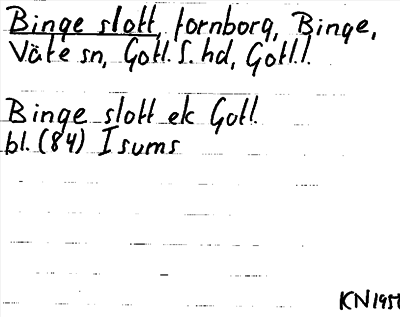 Binge slott, fornborg, Binge,
Väte sn, Gotl. S. hd, Gotl. l.
Binge slott ek Gotl.
bl. (84) Isums
KN 195